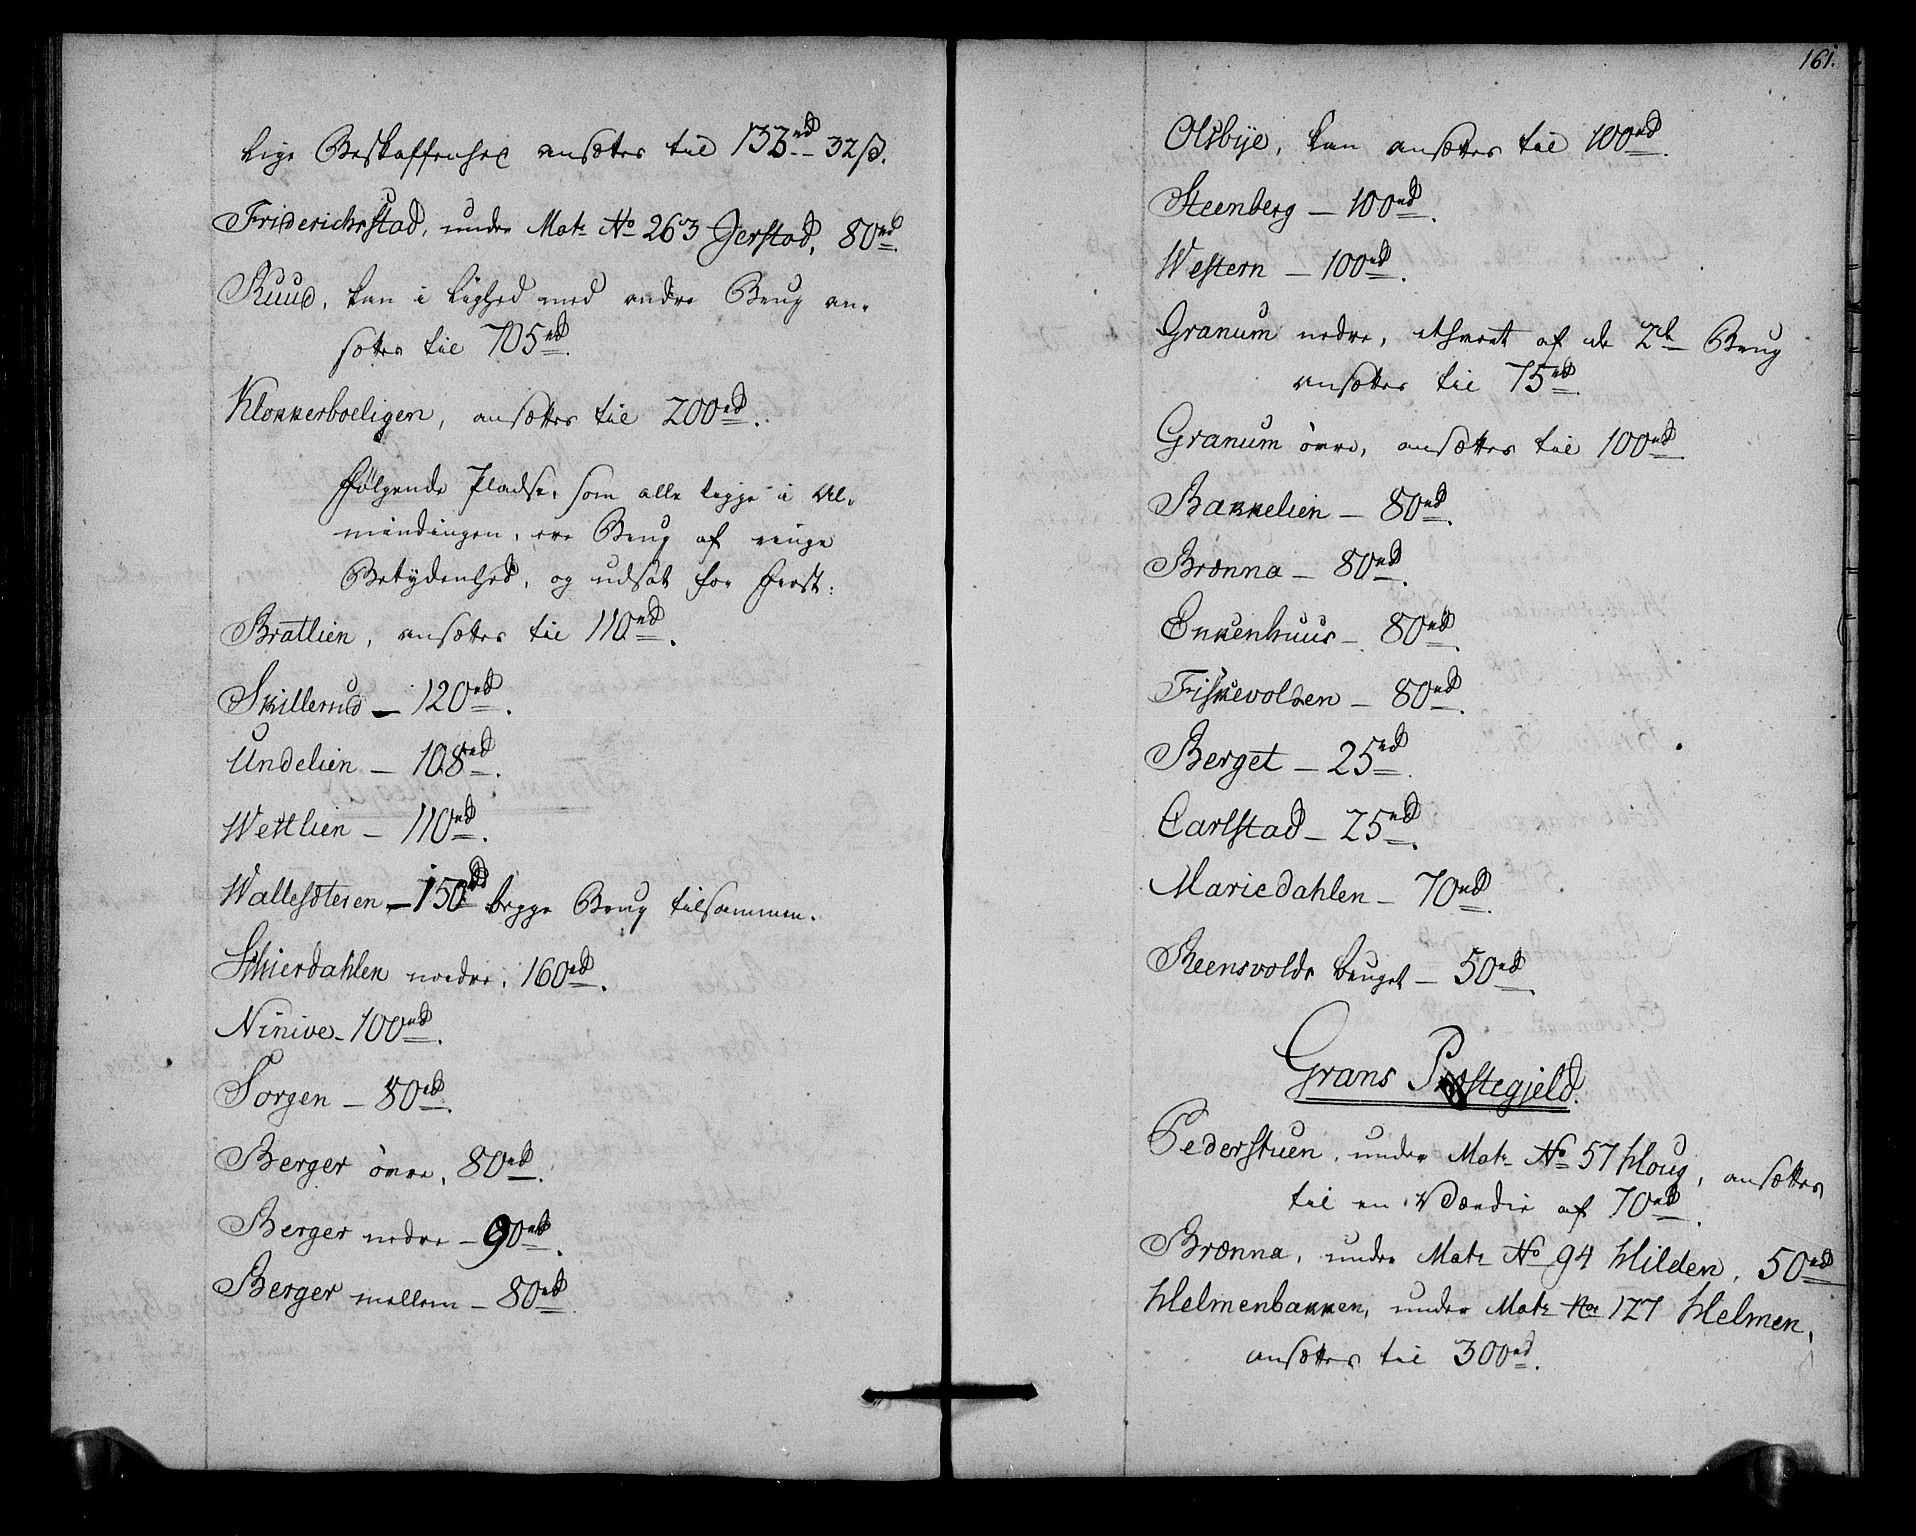 lige Beskaffenhed ansættes til 133rd 32ß.
Friderichsstad, under Matr No 263 Jerstad, 80rd.
Ruud, kan i Lighed med andre Brug an-
sættes til 705rd.
Klokkerboeligen, ansættes til 200rd.
Følgende Pladse, som alle ligge i Al-
mindingen, ere Brug af ringe
Betydenhed, og udsat for Frost:
Bratlien, ansættes til 110rd.
Skillerud – 120rd.
Undelien – 108rd.
Wettlien – 110rd.
Wallesæteren – 150rd begge Brug tilsammen.
Schierdahlen nedre, 160rd.
Ninive – 100rd.
Sorgen – 80rd.
Berger övre, 80rd.
Berger nedre – 90rd.
Berger mellem – 80rd.
161.
Olsbye, kan ansættes til 100rd.
Steenberg – 100rd.
Western – 100rd.
Granum nedre, ethvert af de 2de Brug
ansættes til 75rd.
Granum övre, ansættes til 100rd.
Bakkelien – 80rd.
Brænna – 80rd.
Enkenhuus – 80rd.
Friskevolden – 80rd.
Berget – 25rd.
Carlstad – 25rd.
Mariedahlen – 70rd.
Reensvolds bruget – 50rd.
Grans Præstegjeld.
Pederstuen, under Matr No 57 Houg, ansættes
til en Værdie af 70rd.
Brænna, under Matr No 94 Hilden, 50rd
Helmenbakken, under Matr No 127 Helmen,
ansættes til 300rd.